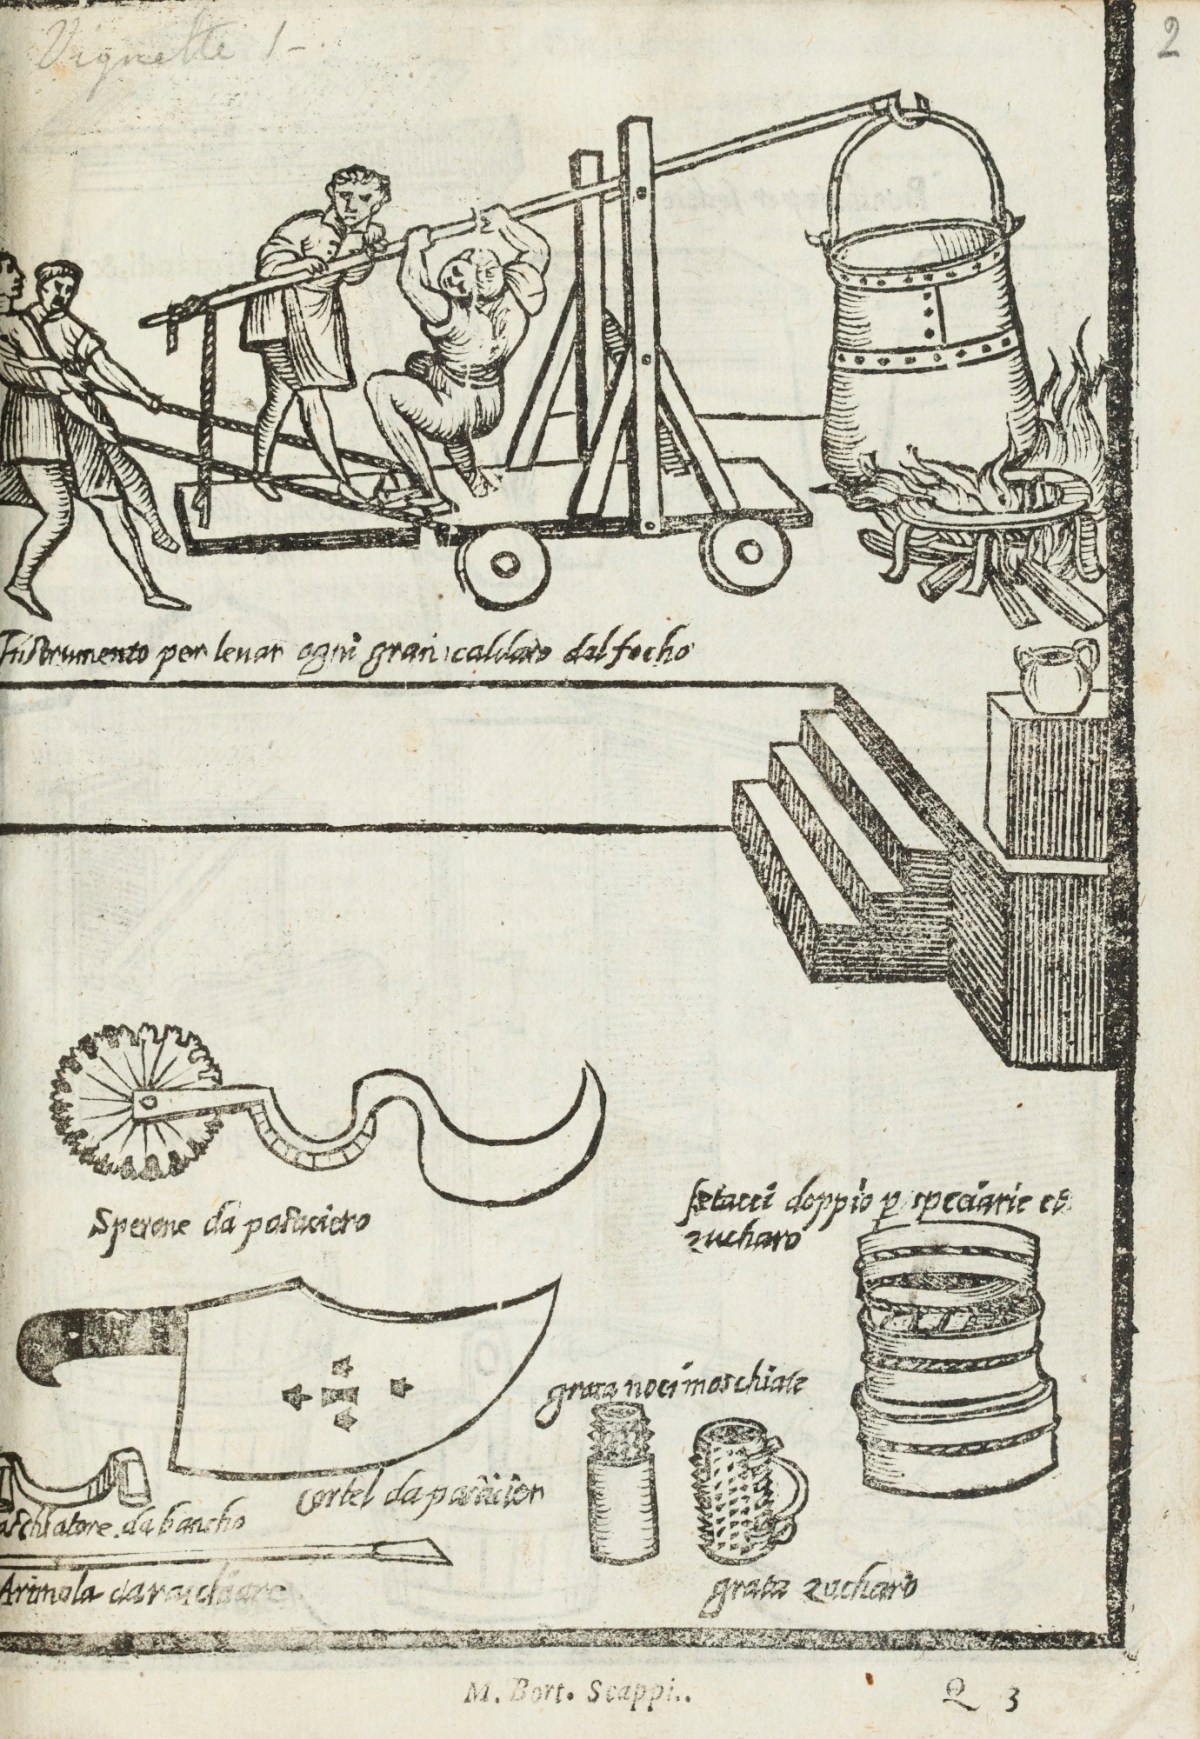 Vignette 1-
2
Instrumento per levar ogni gran caldaro dal focho
Sperone da pasticiero
setacci doppio p speciarie et
zucharo
grata noci moschiate
cortel da pasticier
da bancho
Arimola da raschiare
grata zucharo
M. Bort. Scappi..
Q 3